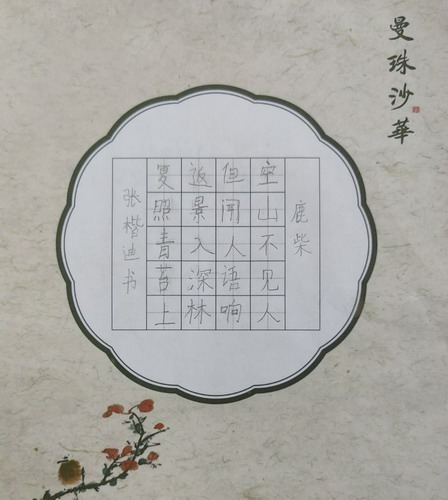 曼珠沙華
鹿柴
空山不见人
但闻人语响
返景入深林
复照青苔上
张楷迪书